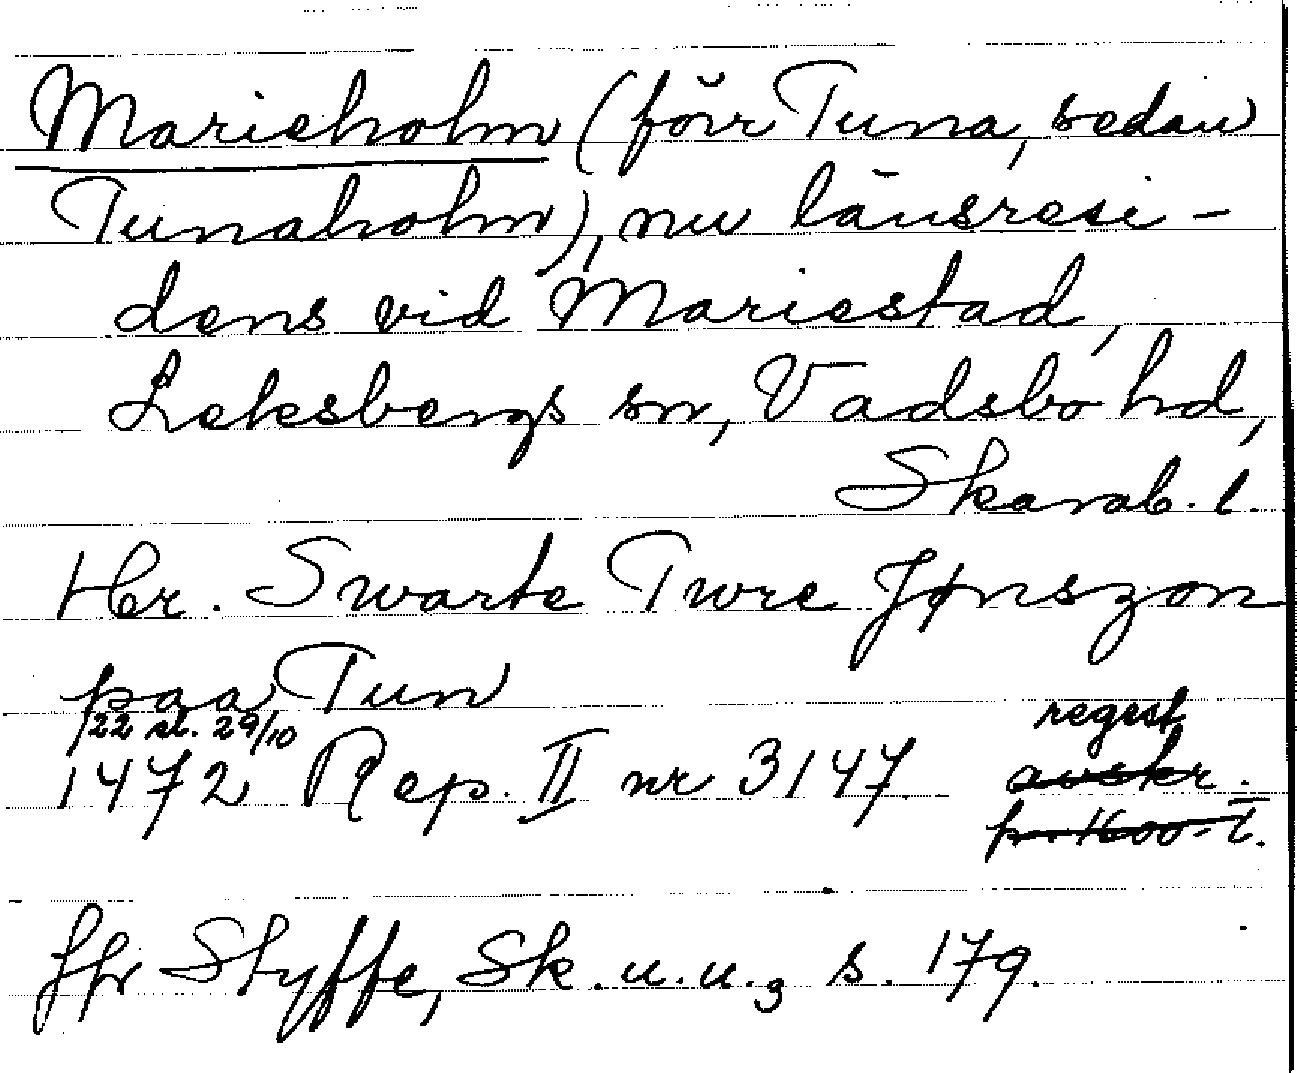 Marieholm (förr Tuna, sedan
Tunaholm), nu länsresi-
dens vid Mariestad,
Leksbergs sn, Vadsbo hd,
Skarab. l.
Her. Swarte Twre Jønszon
paa Tun
22 st. 29/10
1472 Rep. II nr 3147 regest
avskr.
fr. 1600-t.
Jfr Styffe, Sk. u. u.3 s. 179.